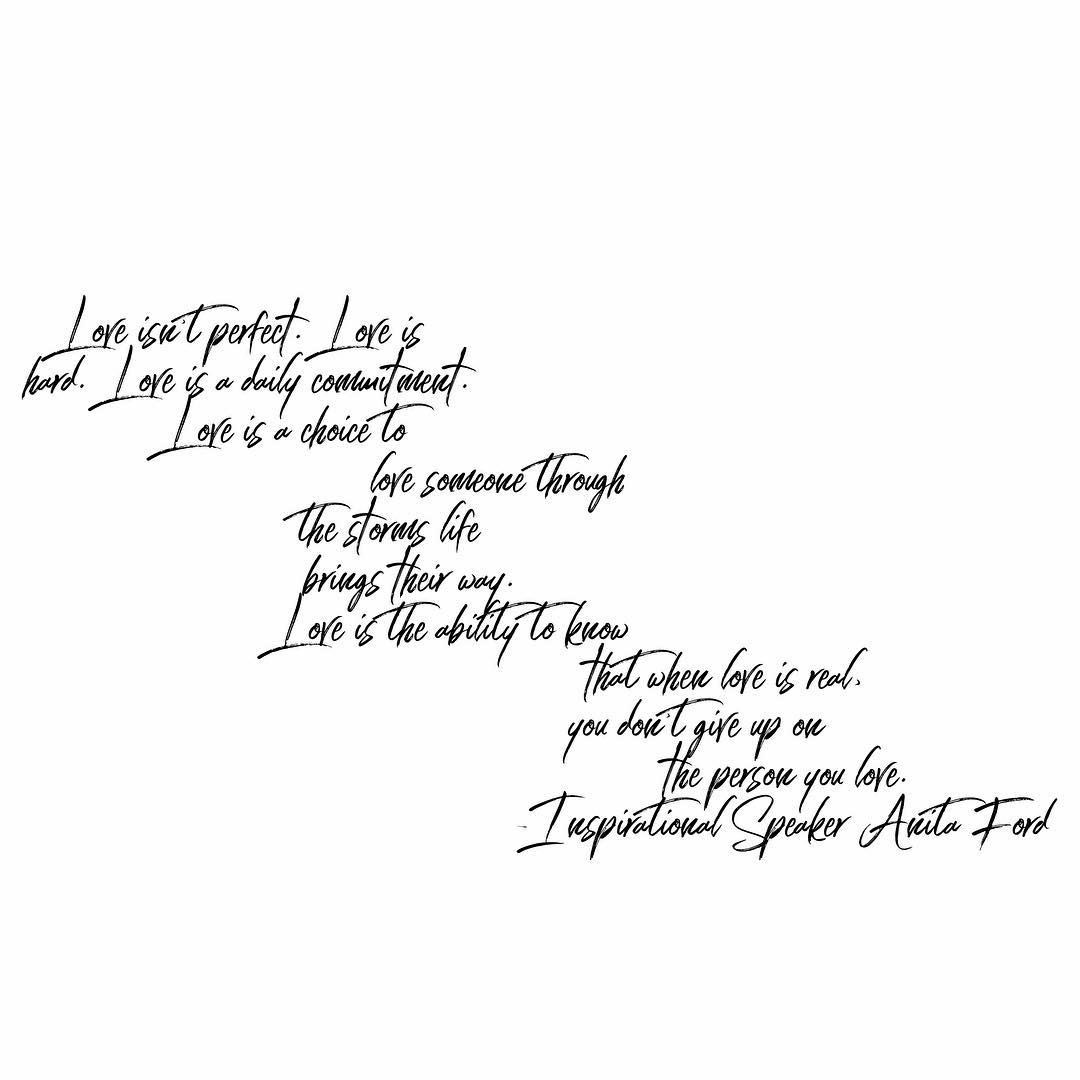 Love isn't perfect. Love is
hard. Love is a daily commitment.
Love is a choice to
love someone through
the storms life
brings their way.
Love is the ability to know
that when love is real,
you don't give up on
the person you love.
-Inspirational Speaker Anita Ford